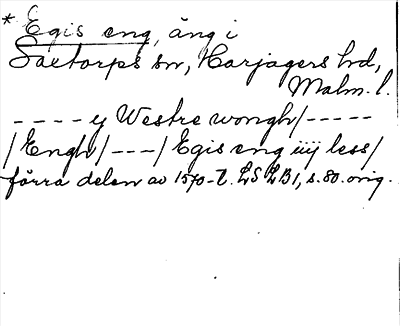 * Egis eng, äng i
Saxtorps sn, Harjagers hd,
Malm. l.
---- y Westre wongh/-----
/Engh/---/Egis eng iiij less/
förra delen av 1570-t. LSLB1, s. 80. orig.